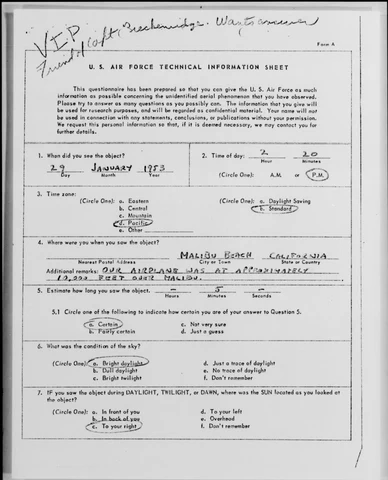 VIP
Friend of Capt. Breckenridge. Wants answer
Form A
U. S. AIR FORCE TECHNICAL INFORMATION SHEET
This questionnaire has been prepared so that you can give the U. S. Air Force as much
information as possible concerning the unidentified aerial phenomenon that you have observed.
Please try to answer as many questions as you possibly can. The information that you give will
be used for research purposes, and will be regarded as confidential material. Your name will not
be used in connection with any statements, conclusions, or publications without your permission.
We request this personal information so that, if it is deemed necessary, we may contact you for
further details.
1. When did you see the object?
29 JANUARY 1953
Day Month Year
2. Time of day: 2 20
Hour Minutes
(Circle One): A.M. or P.M.
3. Time zone:
(Circle One): a. Eastern
b. Central
c. Mountain
d. Pacific
e. Other
(Circle One): a. Daylight Saving
b. Standard
4. Where were you when you saw the object?
MALIBU BEACH CALIFORNIA
Nearest Postal Address City or Town State or Country
Additional remarks: OUR AIRPLANE WAS AT APPROXIMATELY
10,000 FEET OVER MALIBU.
5. Estimate how long you saw the object. - 5 -
Hours Minutes Seconds
5.1 Circle one of the following to indicate how certain you are of your answer to Question 5.
a. Certain
b. Fairly certain
c. Not very sure
d. Just a guess
6. What was the condition of the sky?
(Circle One): a. Bright daylight
b. Dull daylight
c. Bright twilight
d. Just a trace of daylight
e. No trace of daylight
f. Don't remember
7. IF you saw the object during DAYLIGHT, TWILIGHT, or DAWN, where was the SUN located as you looked at
the object?
(Circle One): a. In front of you
b. In back of you
c. To your right
d. To your left
e. Overhead
f. Don't remember